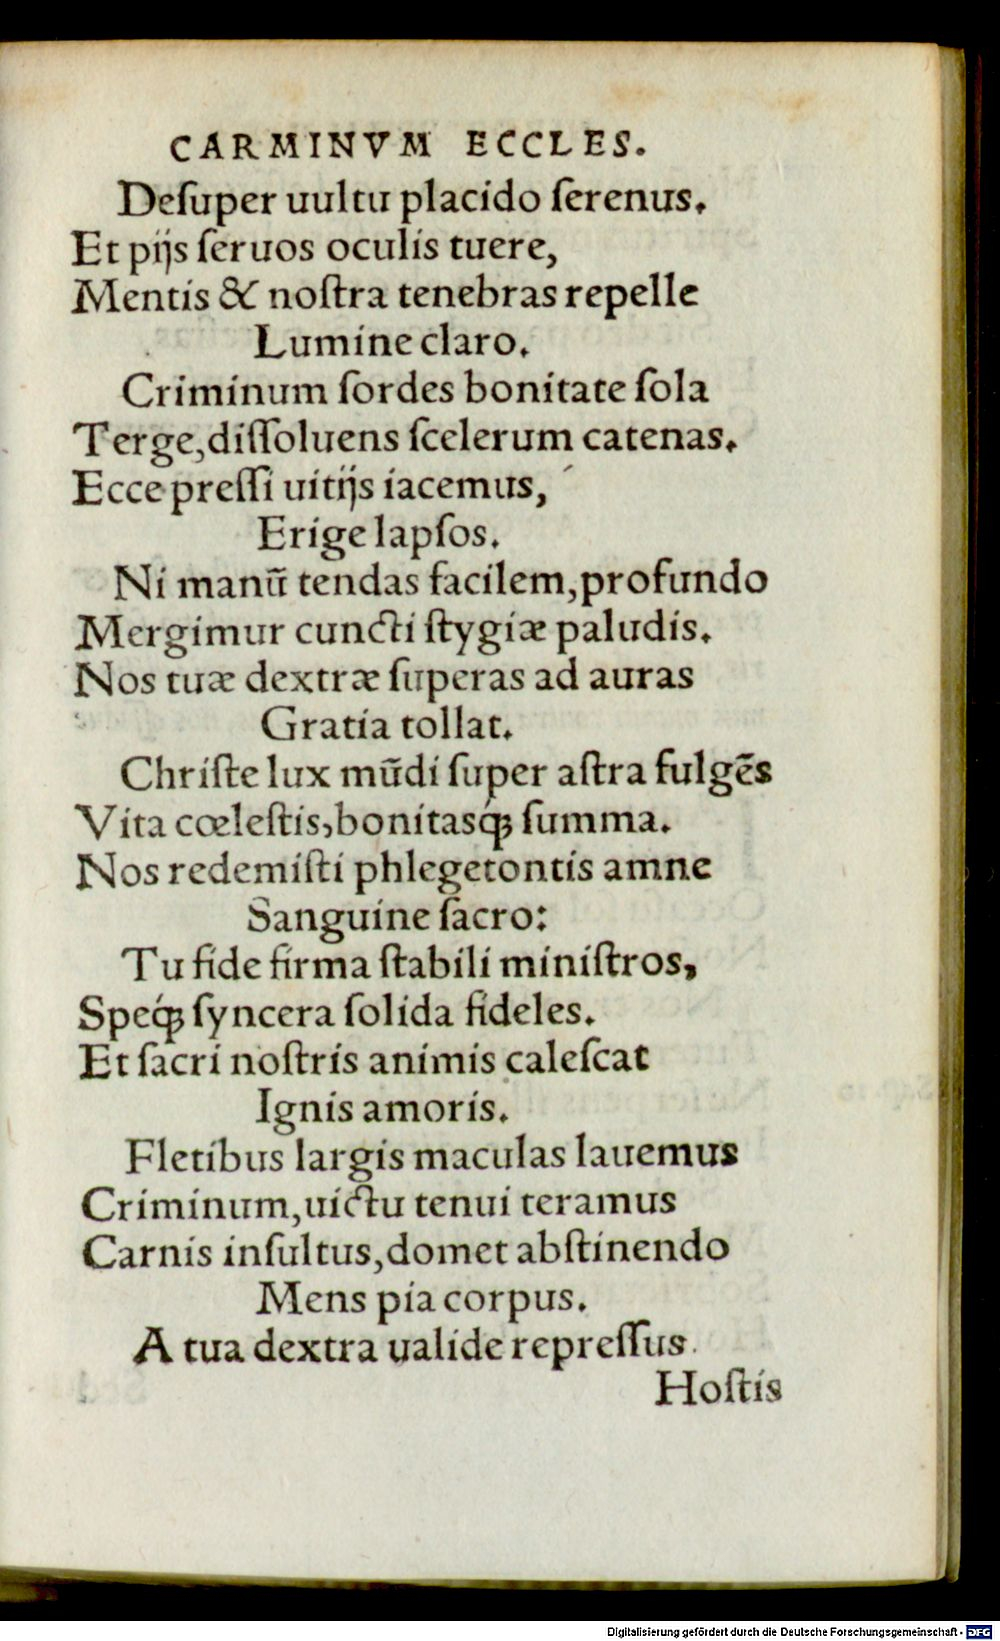 CARMINVM ECCLES.
Deſuper uultu placido ſerenus.
Et pijs ſeruos oculis tuere,
Mentis & noſtra tenebras repelle
Lumine claro.
Criminum ſordes bonitate ſola
Terge,diſſoluens ſcelerum catenas.
Ecce preſſi uitijs iacemus,
Erige lapſos.
Ni manũ tendas facilem,profundo
Mergimur cuncti ſtygiæ paludis.
Nos tuæ dextræ ſuperas ad auras
Gratia tollat.
Chriſte lux mũdi ſuper aſtra fulgẽs
Vita cœleſtis,bonitasq́ꝫ ſumma.
Nos redemiſti phlegetontis amne
Sanguine ſacro:
Tu fide firma ſtabili miniſtros,
Speq́ꝫ ſyncera ſolida fideles.
Et ſacri noſtris animis caleſcat
Ignis amoris.
Fletibus largis maculas lauemus
Criminum,uictu tenui teramus
Carnis inſultus,domet abſtinendo
Mens pia corpus.
A tua dextra ualide repreſſus.
Hoſtis
Digitalisierung gefördert durch die Deutsche Forschungsgemeinschaft - DFG